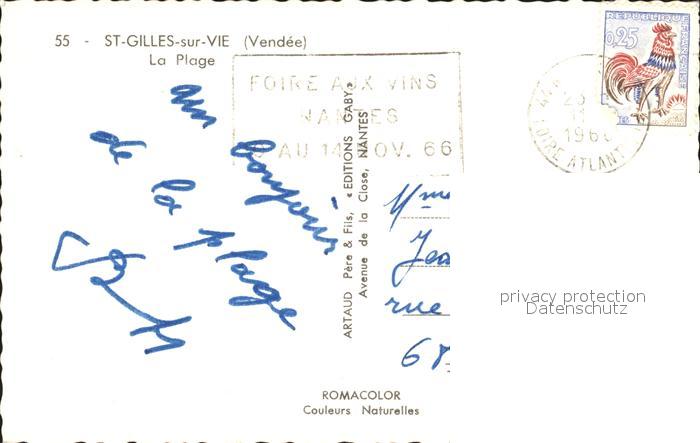 55 - ST-GILLES-sur-VIE (Vendée)
La Plage
FOIRE AUX VINS
NANTES
AU 14 NOV. 66
REPUBLIQUE FRANÇAISE
0,25
LOIRE ATLANT
un bonjour
de la plage
ARTAUD Père & Fils, «EDITIONS GABY»
Avenue de la Close, NANTES
Mme
Jea
rue
68
privacy protection
Datenschutz
ROMACOLOR
Couleurs Naturelles